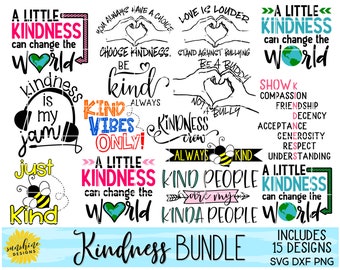 A LITTLE
KINDNESS
can change the
World
YOU ALWAYS HAVE A CHOICE
CHOOSE KINDNESS.
LOVE IS LOUDER
STAND AGAINST BULLYING
A LITTLE
KINDNESS
can change the
World
kindness
is my
jam!
BE
kind
ALWAYS
BE A BUDDY
NOT A BULLY
SHOW
COMPASSION
FRIENDSHIP
DECENCY
ACCEPTANCE
GENEROSITY
RESPECT
UNDERSTANDING
KIND
VIBES
ONLY!
KINDNESS
crew
ALWAYS KIND
just
Kind
A LITTLE
KINDNESS
can change the
World
KIND PEOPLE
are my
KINDA PEOPLE
A LITTLE
KINDNESS
can change the
World
sunshine
DESIGNS
Kindness BUNDLE
INCLUDES
15 DESIGNS
SVG DXF PNG